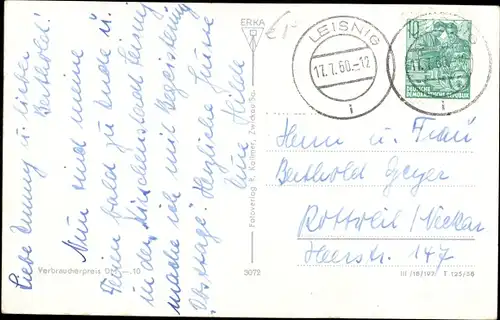 Liebe Emmy u. lieber
Berthold!
Nun sind meine
Ferien bald zu Ende u.
in der
mache ich mit Begeisterung
"Obsttage". Herzliche Grüße
Eure Hilde
Verbraucherpreis DM -.10
ERKA
Fotoverlag R. Kallmer, Zwickau/Sa.
3072
LEISNIG
17.7.60.-12
i
10
DEUTSCHE
DEMOKRATISCHE REPUBLIK
17.7.60
i
Herrn u. Frau
Berthold Geyer
Rottweil/Neckar
Heerstr. 147
III/18/197 T 125/58